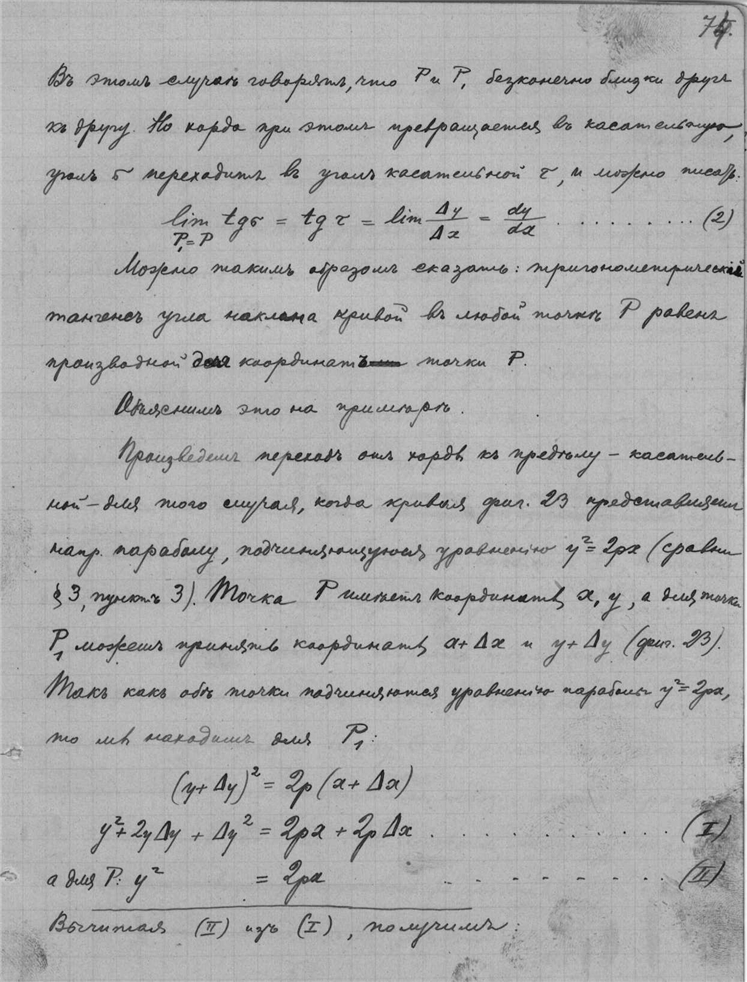 Въ этомъ случаѣ говорятъ, что P и P₁ безконечно близки другъ
къ другу. Но хорда при этомъ превращается въ касательную,
уголъ σ переходитъ въ уголъ касательной τ, и можно писать:
lim tgσ = tg τ = lim Δy/Δx = dy/dx . . . . . . . . . (2)
P₁=P
Можно такимъ образомъ сказать: тригонометрическій
тангенсъ угла наклона кривой въ любой точкѣ P равенъ
производной для координатъ точки P.
Объяснимъ это на примѣрѣ.
Произведемъ переходъ отъ хорды къ предѣлу – касатель-
ной – для того случая, когда кривая фиг. 23 представляетъ
напр. параболу, подчиняющуюся уравненію y² = 2px (сравни
§ 3, пунктъ 3). Точка P имѣетъ координаты x, y, а для точки
P₁ можемъ принять координаты x + Δx и y + Δy (фиг. 23).
Такъ какъ обѣ точки подчиняются уравненію параболы y² = 2px,
то мы находимъ для P₁:
(y + Δy)² = 2p (x + Δx)
y² + 2yΔy + Δy² = 2px + 2pΔx . . . . . . . . . . . (I)
а для P: y² = 2px . . . . . . . . (II)
Вычитая (II) изъ (I), получимъ: